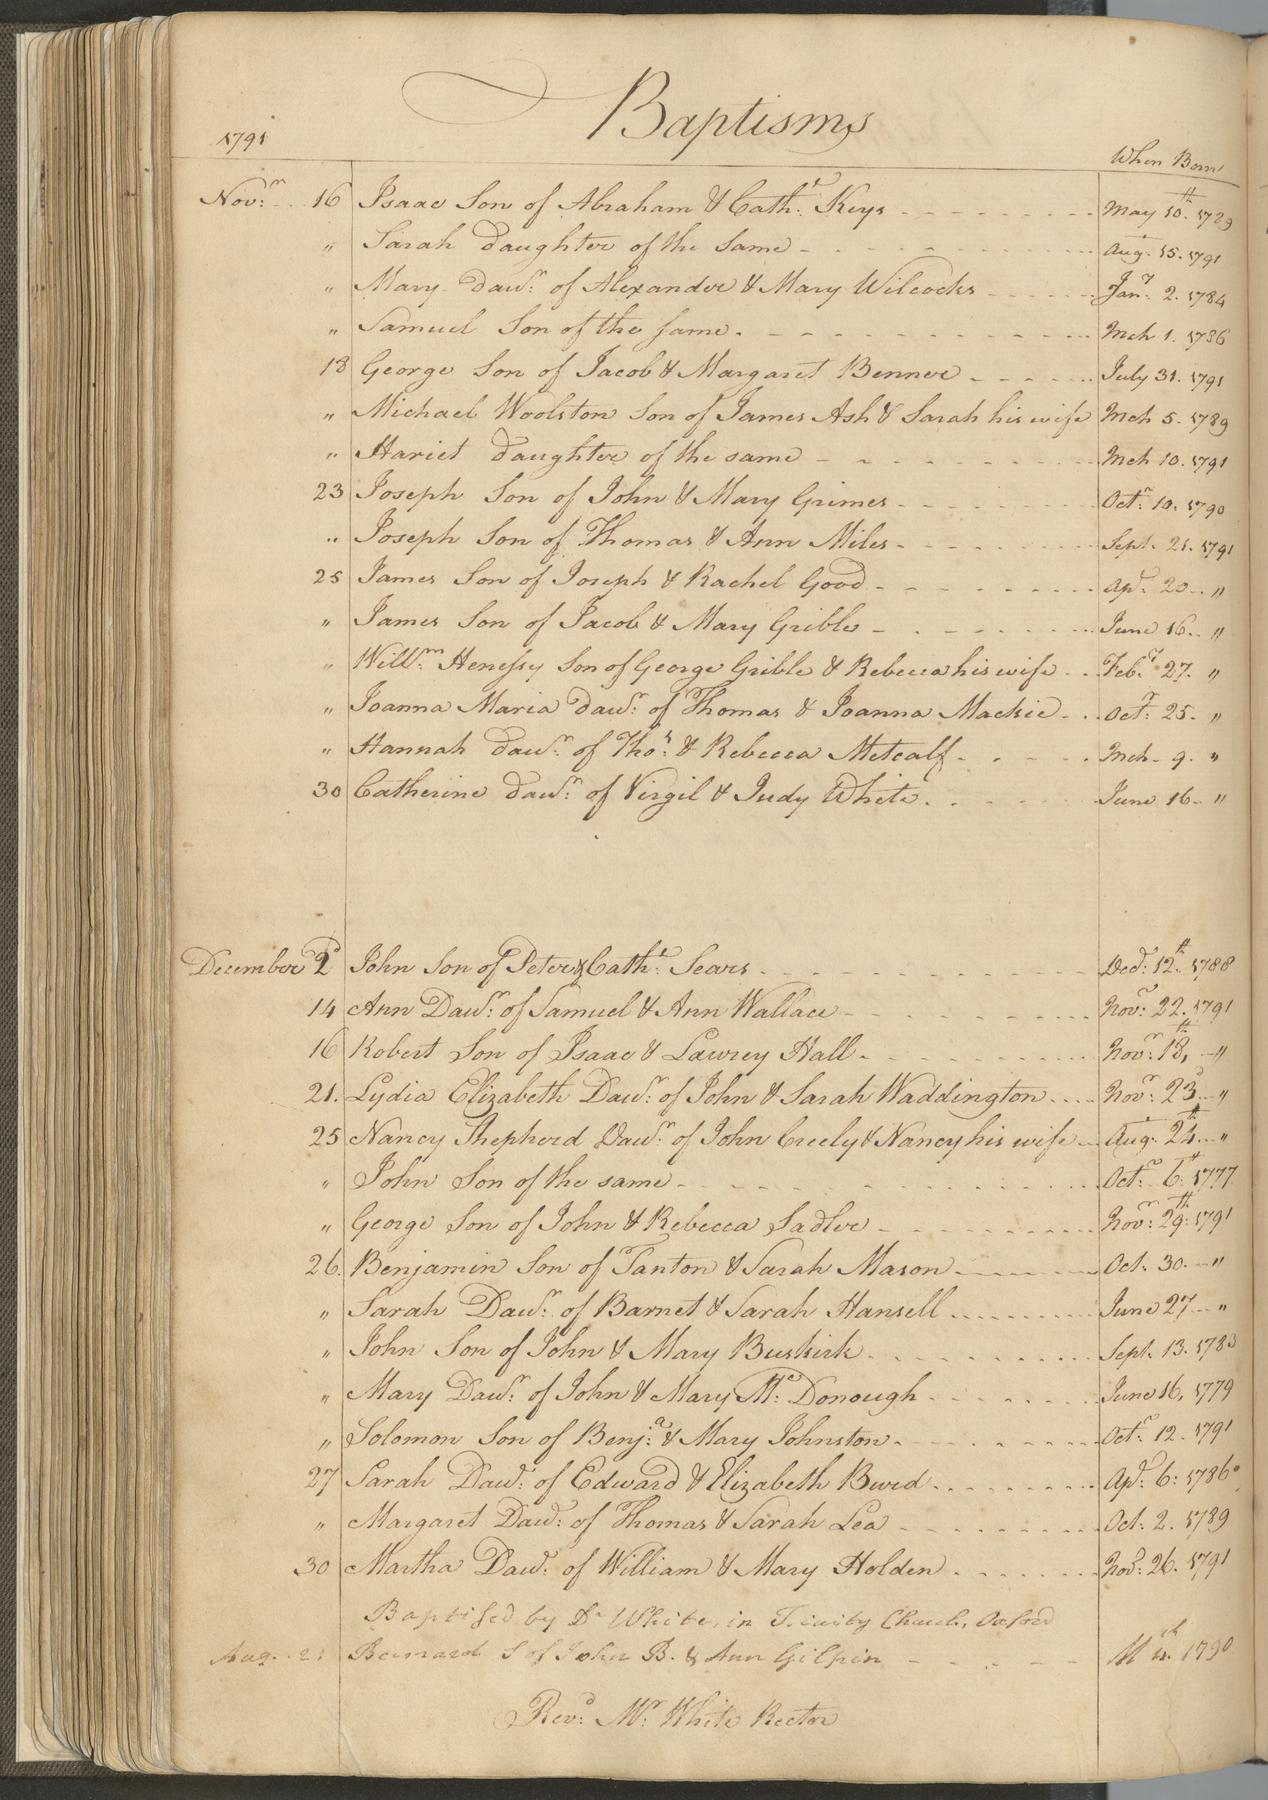 Baptisms
1791
When Born
Novr. 16 Isaac Son of Abraham & Cathe. Keys May 10th. 1789
" Sarah daughter of the Same Aug. 15. 1791
" Mary dawr. of Alexander & Mary Wilcocks Jany. 2. 1784
" Samuel Son of the same. Mch 1. 1786
18 George Son of Jacob & Margaret Benner July 31. 1791
" Michael Woolston Son of James Ash & Sarah his wife Mch 5. 1789
" Hariet daughter of the same Mch 10. 1791
23 Joseph Son of John & Mary Grimes Octr. 10. 1790
" Joseph Son of Thomas & Ann Miles Sept. 21. 1791
25 James Son of Joseph & Rachel Good Apr. 20 "
" James Son of Jacob & Mary Grible June 16. "
" Willm. Henessy Son of George Grible & Rebecca his wife Feby. 27. "
" Joanna Maria dawr. of Thomas & Joanna Mackie Octr. 25. "
" Hannah dawr. of Thos. & Rebecca Metcalf Mch. 9. "
30 Catherine dawr. of Virgil & Judy White June 16. "
December 2d John Son of Peter & Cathe. Sears Decr. 12th. 1788
14 Ann Dawr. of Samuel & Ann Wallace Novr. 22. 1791
16 Robert Son of Isaac & Lawrey Hall Novr. 18th, "
21. Lydia Elizabeth Dawr. of John & Sarah Waddington Novr. 23d "
25 Nancy Shepherd Dawr. of John Creely & Nancy his wife Aug. 24th "
" John Son of the same Octr. 6th. 1777
" George Son of John & Rebecca Sadler Novr. 29th. 1791
26. Benjamin Son of Tanton & Sarah Mason Oct. 30. "
" Sarah Dawr. of Barnet & Sarah Hansell June 27 "
" John Son of John & Mary Buskirk Sept. 13.
" Mary Dawr. of John & Mary Mc. Donough June 16, 1779
" Solomon Son of Benja. & Mary Johnston Octr. 12. 1791
27 Sarah Dawr. of Edward & Elizabeth Burd Apr. 6. 1786
" Margaret Dawr. of Thomas & Sarah Lea Oct. 2. 1789
30 Martha Dawr. of William & Mary Holden Novr. 26. 1791
Baptised by Dr White, in Trinity Church, Oxford
Aug. 21 Bernard S of John B. & Ann Gilpin 1790
Revd. Mr. White Rector